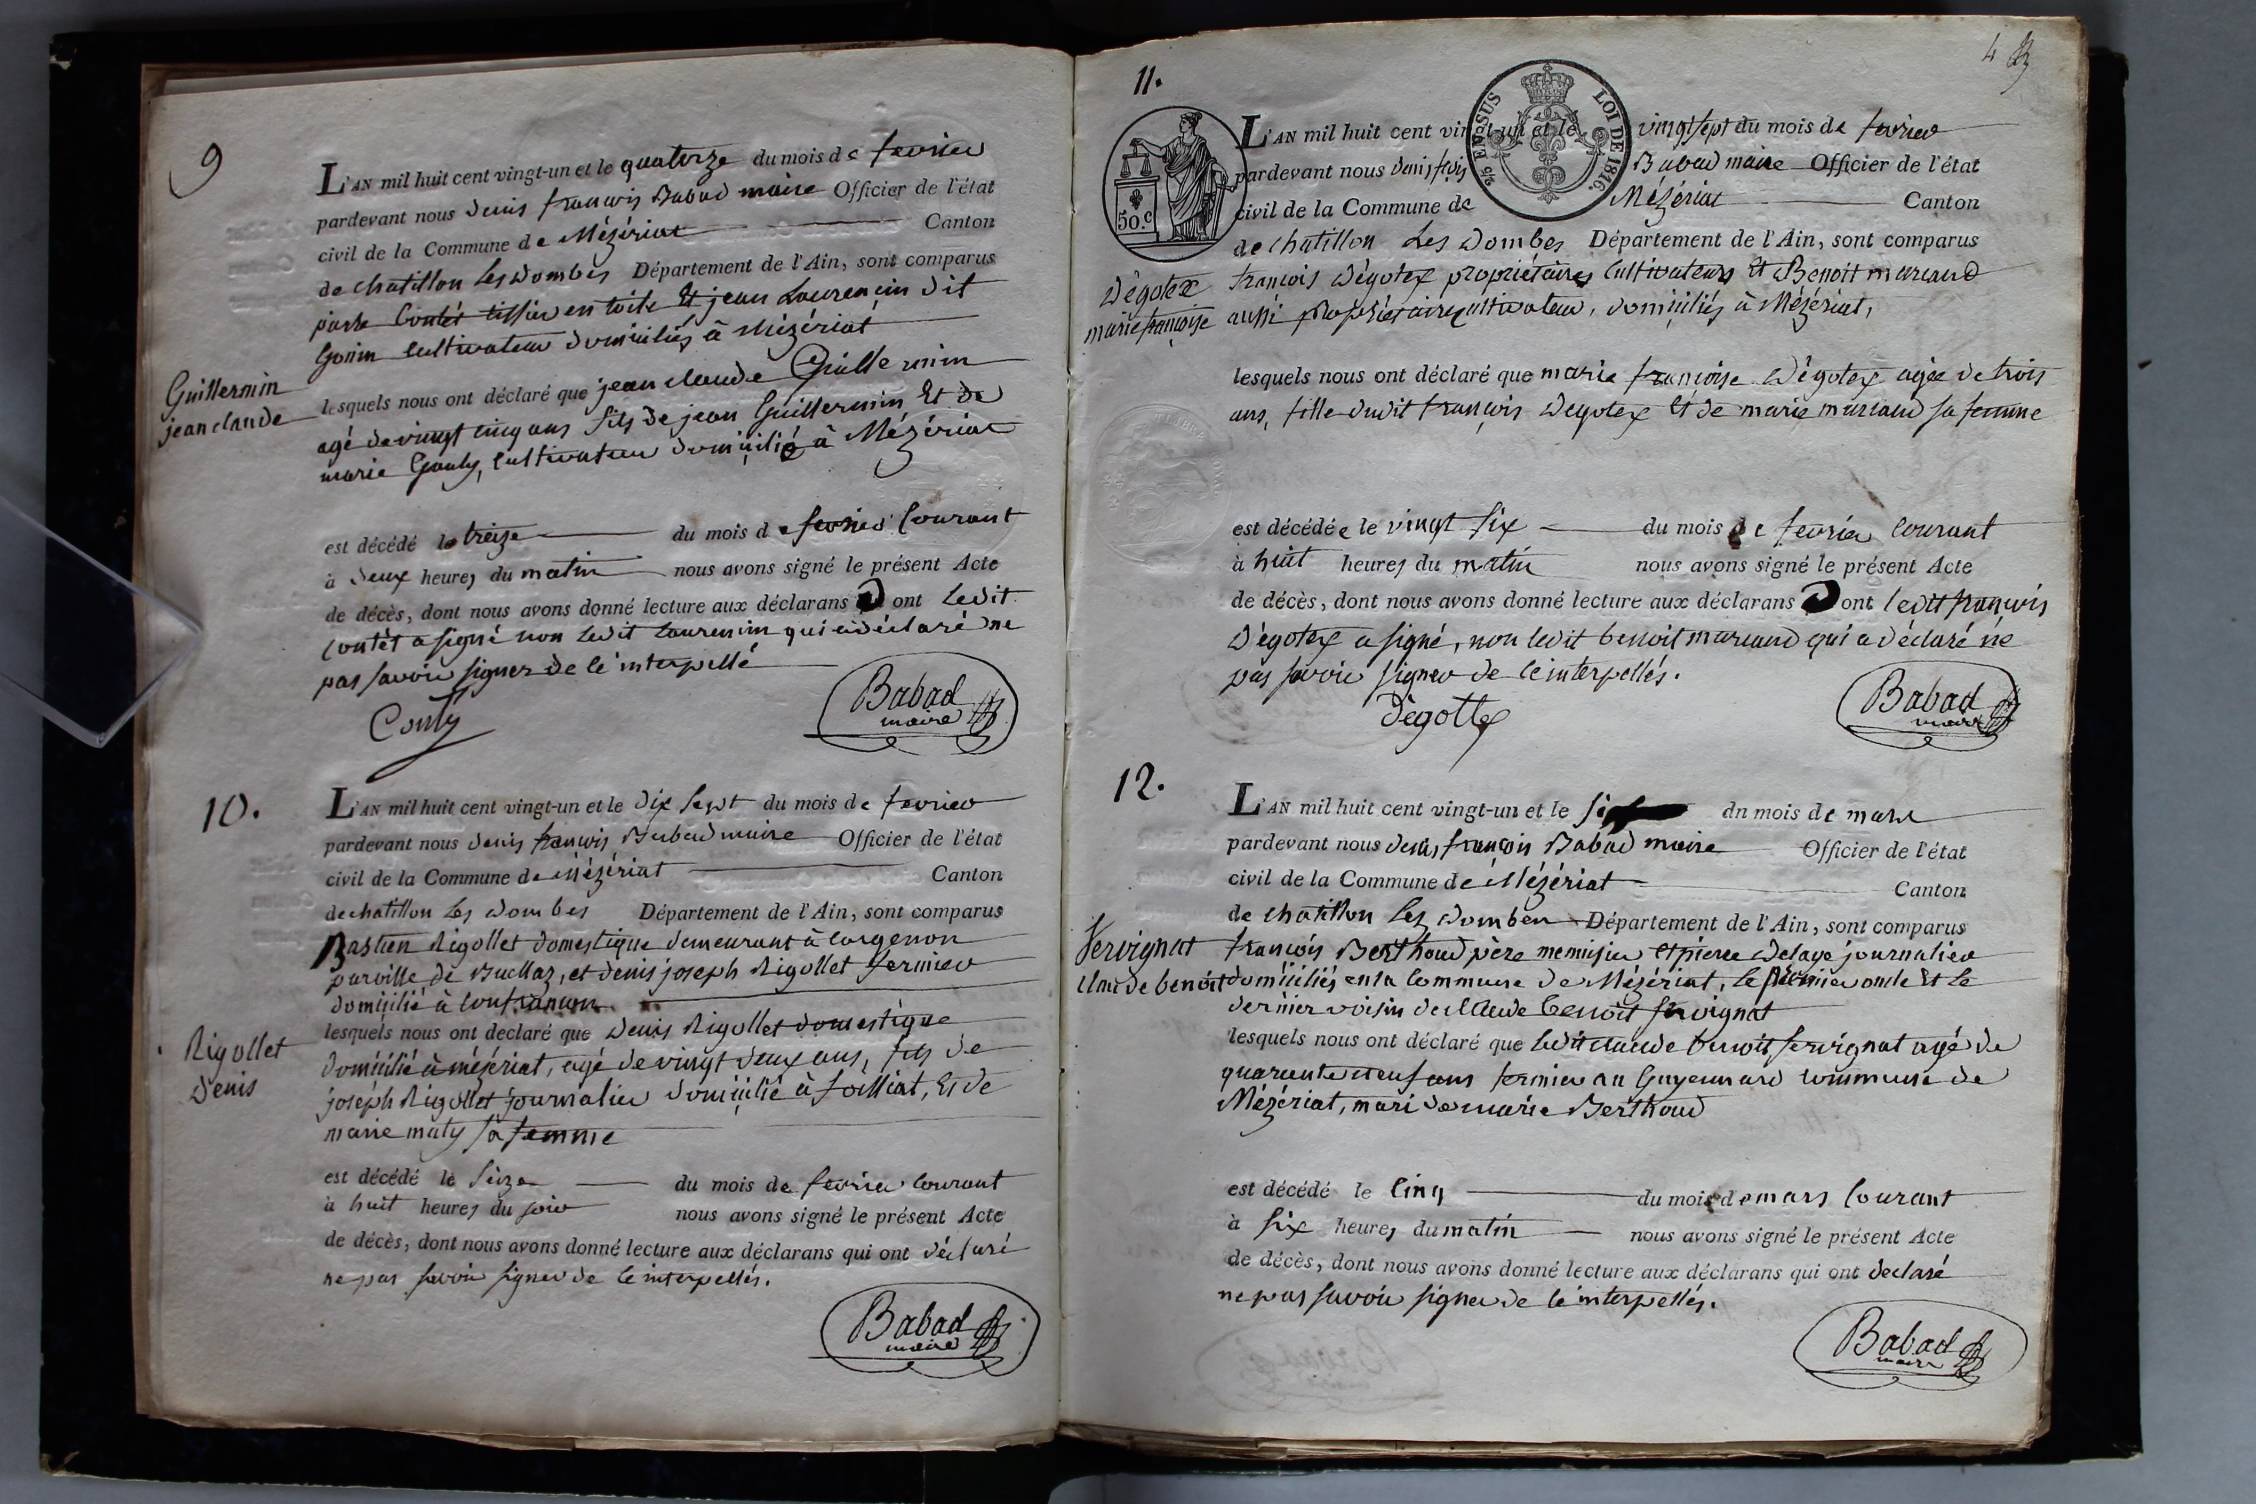 9
L'AN mil huit cent vingt-un et le quatorze du mois de fevrier
pardevant nous denis françois Babad maire Officier de l'état
civil de la Commune de Mézériat Canton
de chatillon Les dombes Département de l'Ain, sont comparus
Contét tissier en toile Et jean Laurençin dit
Gonin cultivateur domiciliés à Mézériat
Guillermin
jean claude
lesquels nous ont déclaré que jean claude Guillermin
agé de vingt cinq ans fils de jean Guillermin Et de
marie Gouly, cultivateur domicilié à Mézériat
est décédé le treize du mois de fevrier courant
à deux heures du matin nous avons signé le présent Acte
de décès, dont nous avons donné lecture aux déclarans Dont Ledit
Contét a signé non Ledit Laurencin qui a déclaré ne
pas savoir signer de ce interpellé
Babad
maire
10.
L'AN mil huit cent vingt-un et le dix sept du mois de fevrier
pardevant nous denis françois Babad maire Officier de l'état
civil de la Commune de Mézériat Canton
de chatillon Les dombes Département de l'Ain, sont comparus
Bastien Rigollet domestique demeurant à Corgenon
parville de Buellaz, et denis joseph Rigollet fermier
domicilié à Confrançon
lesquels nous ont declaré que denis Rigollet domestique
Rigollet
Denis
domicilié à mézériat, agé de vingt deux ans, fils de
joseph Rigollet journalier domicilié à foissiat, Et de
marie maty sa femme
est décédé le seize du mois de fevrier courant
à huit heures du soir nous avons signé le présent Acte
de décès, dont nous avons donné lecture aux déclarans qui ont déclaré
ne pas savoir signer de ce interpellés.
Babad
maire
4
11.
50.c
25 EN SUS
LOI DE 1816.
L'AN mil huit cent vingt-un et le vingt sept du mois de fevrier
pardevant nous denis fçois Babad maire Officier de l'état
civil de la Commune de Mézériat Canton
de chatillon Les dombes Département de l'Ain, sont comparus
Dégotex
marie françoise
françois Dégotex propriétaires cultivateurs Et Benoit marcaud
aussi propriétaire cultivateur, domiciliés à Mézériat,
lesquels nous ont déclaré que marie françoise Dégotex agée de trois
ans, fille dudit françois Degotex Et de marie marcaud sa femme
est décédée le vingt six du mois de fevrier courant
à huit heures du matin nous avons signé le présent Acte
de décès, dont nous avons donné lecture aux déclarans Dont ledit françois
Dégotex a signé, non ledit benoit marcaud qui a déclaré ne
pas savoir signer de ce interpellés.
Dègottex
Babad
maire
12.
L'AN mil huit cent vingt-un et le six du mois de mars
pardevant nous denis françois Babad maire Officier de l'état
civil de la Commune de Mézériat Canton
de chatillon Les dombes Département de l'Ain, sont comparus
Servignat
claude benoit
françois Berthoud père menuisier et pierre Delaye journalier
domiciliés en la Commune de Mézériat, le premier oncle Et le
dernier voisin de claude benoit servignat
lesquels nous ont déclaré que ledit claude benoit servignat agé de
quarante neuf ans fermier au Guyennard commune de
Mézériat, mari de marie Berthoud
est décédé le cinq du mois de mars courant
à six heures du matin nous avons signé le présent Acte
de décès, dont nous avons donné lecture aux déclarans qui ont declaré
ne pas savoir signer de ce interpellés.
Babad
maire